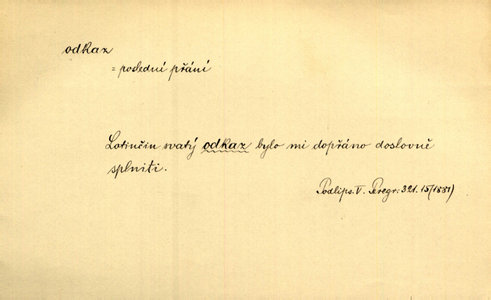 odkaz
= poslední přání
Lotinčin svatý odkaz bylo mi dopřáno doslovně
splniti.
Podlips. V. Peregr. 321. 15 (1881)